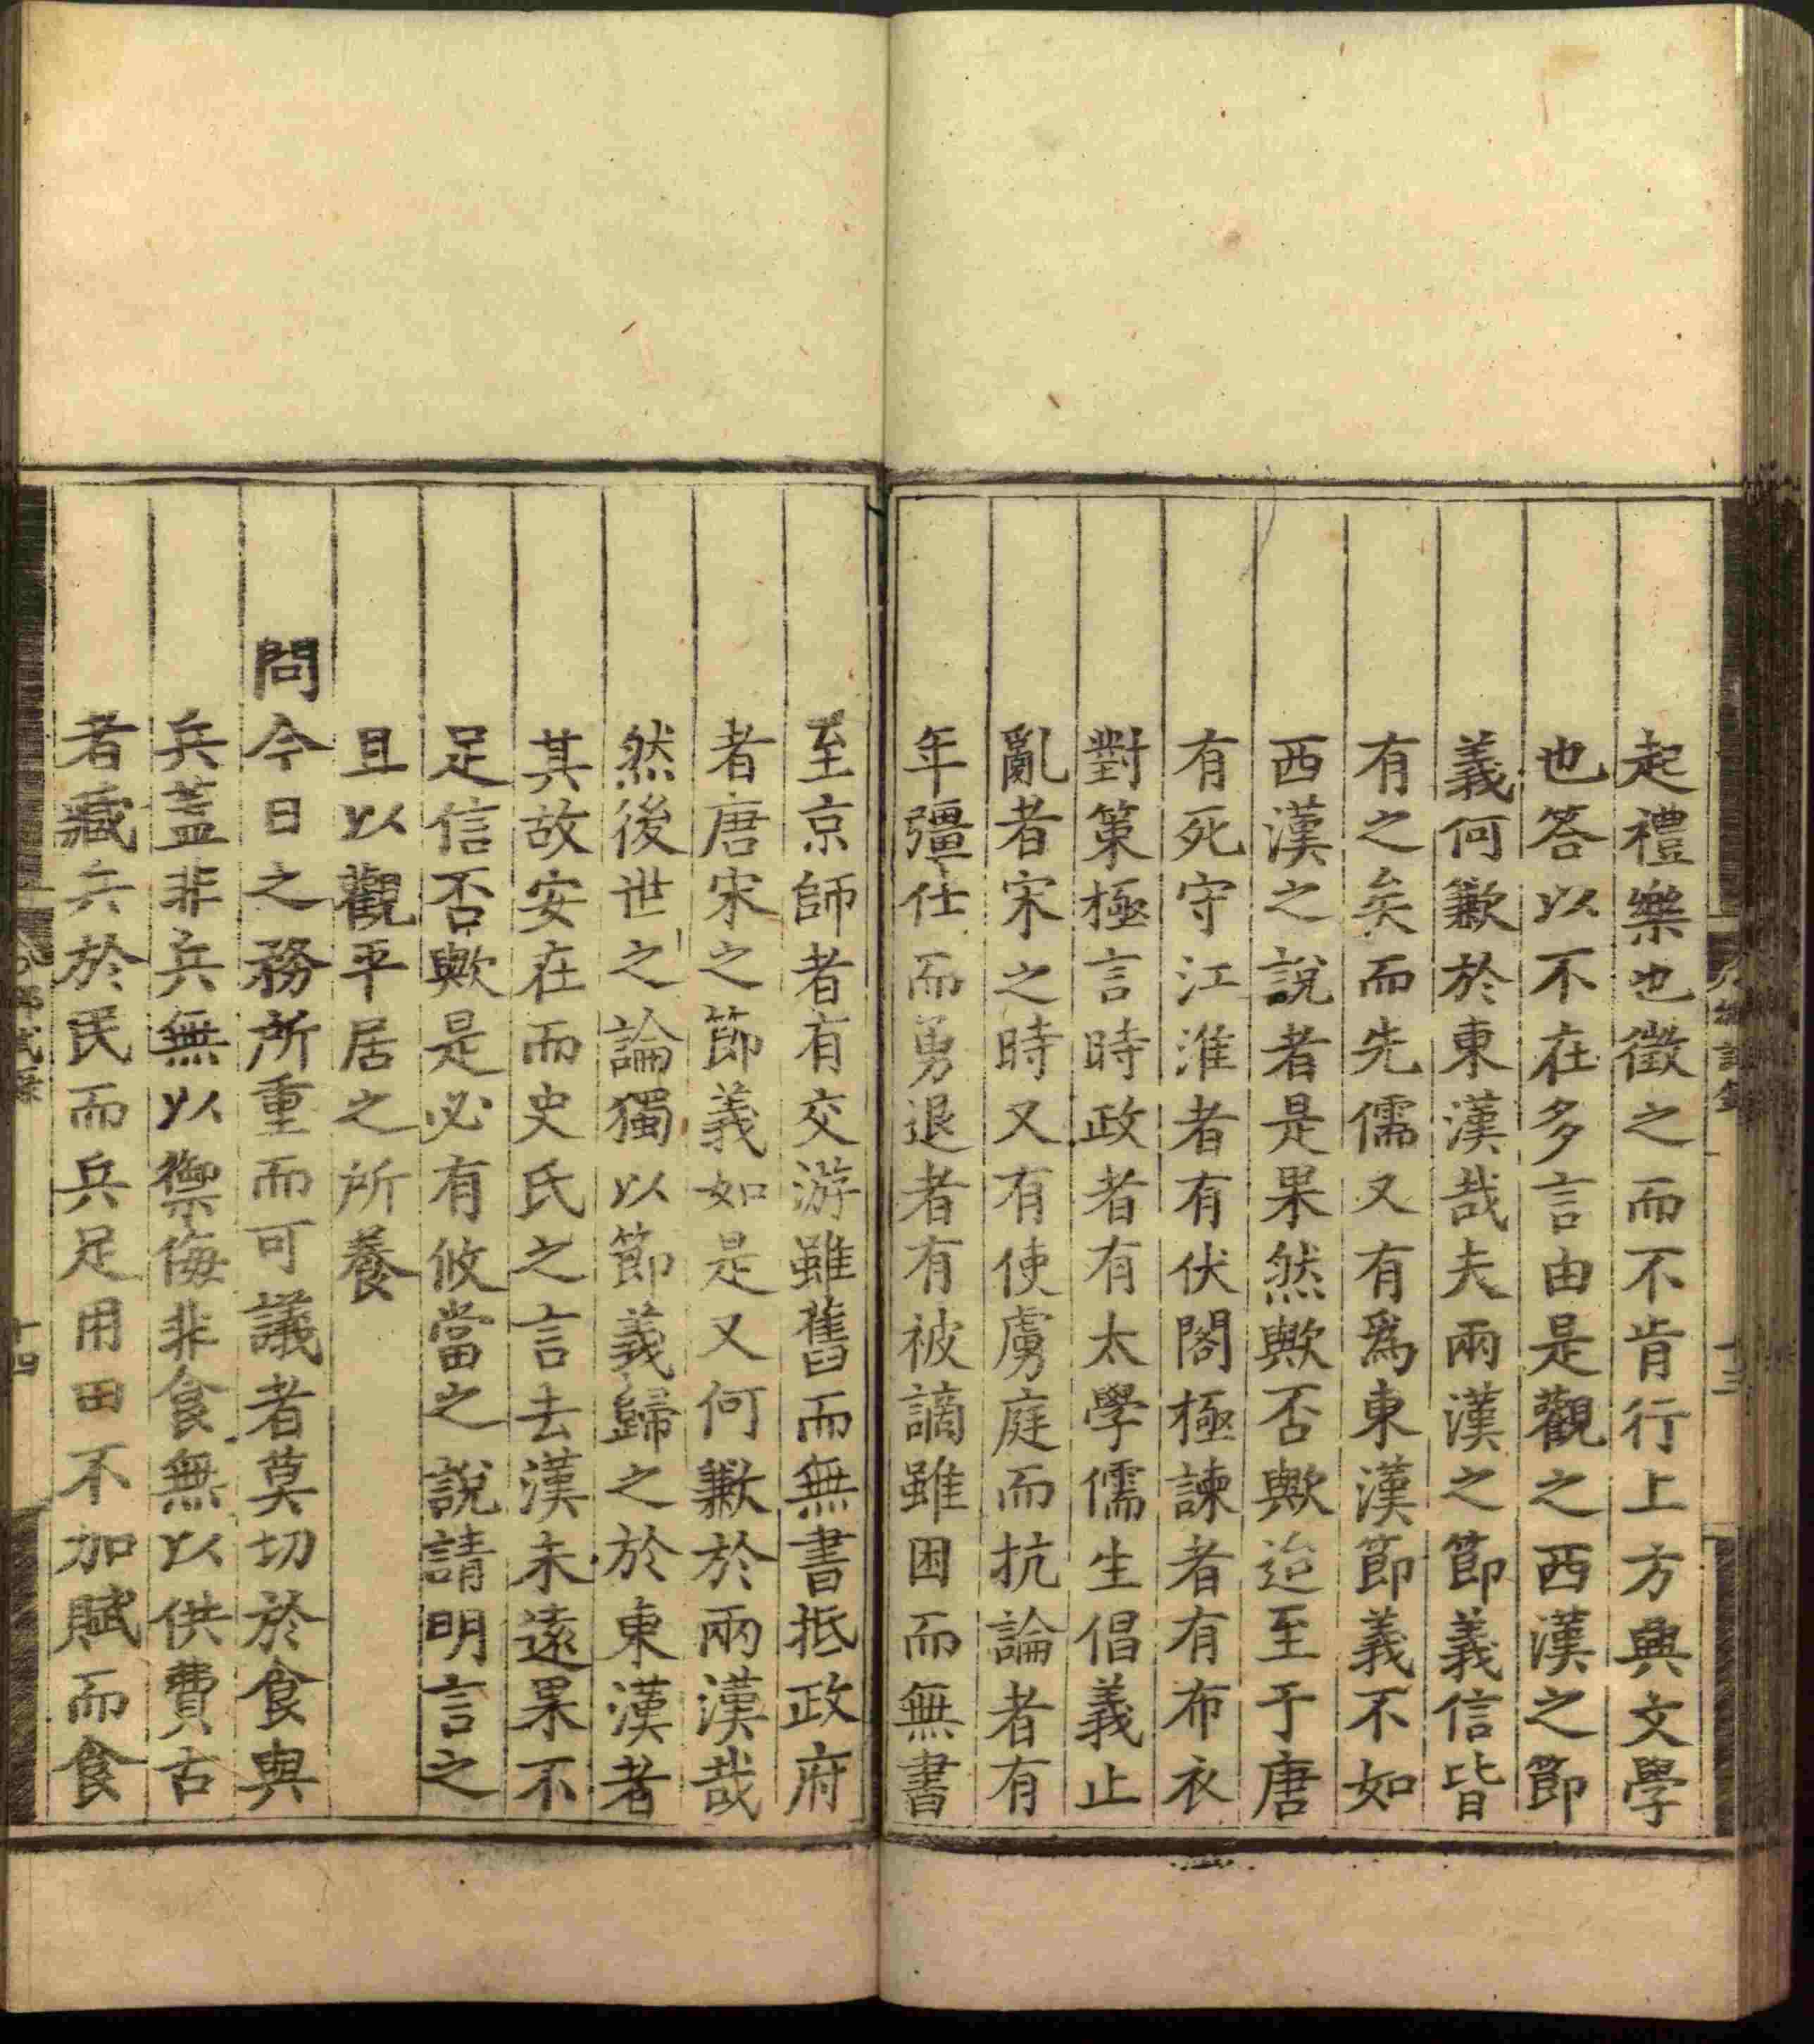 起禮樂也徵之而不肯行上方典文學
也答以不在多言由是觀之西漢之節
義何歉於東漢哉夫兩漢之節義信皆
有之矣而先儒又有爲東漢節義不如
西漢之說者是果然歟否歟迨至于唐
有死守江淮者有伏閤極諫者有布衣
對策極言時政者有太學儒生倡義止
亂者宋之時又有使虜庭而抗論者有
年彊仕而勇退者有被謫雖困而無書
至京師者有交游雖舊而無書抵政府
者唐宋之節義如是又何歉於兩漢哉
然後世之論獨以節義歸之於東漢者
其故安在而史氏之言去漢未遠果不
足信否歟是必有攸當之說請明言之
且以觀平居之所養
問今日之務所重而可議者莫切於食與
兵蓋非兵無以禦侮非食無以供費古
者藏兵於民而兵足用田不加賦而食
十三
十四